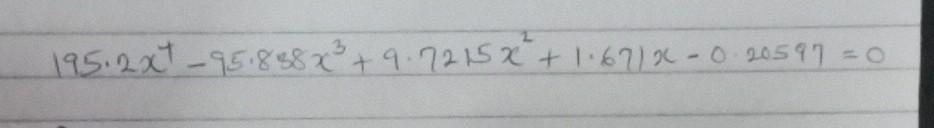 195.2x⁴ - 95.888x³ + 9.7215x² + 1.671x - 0.20597 = 0